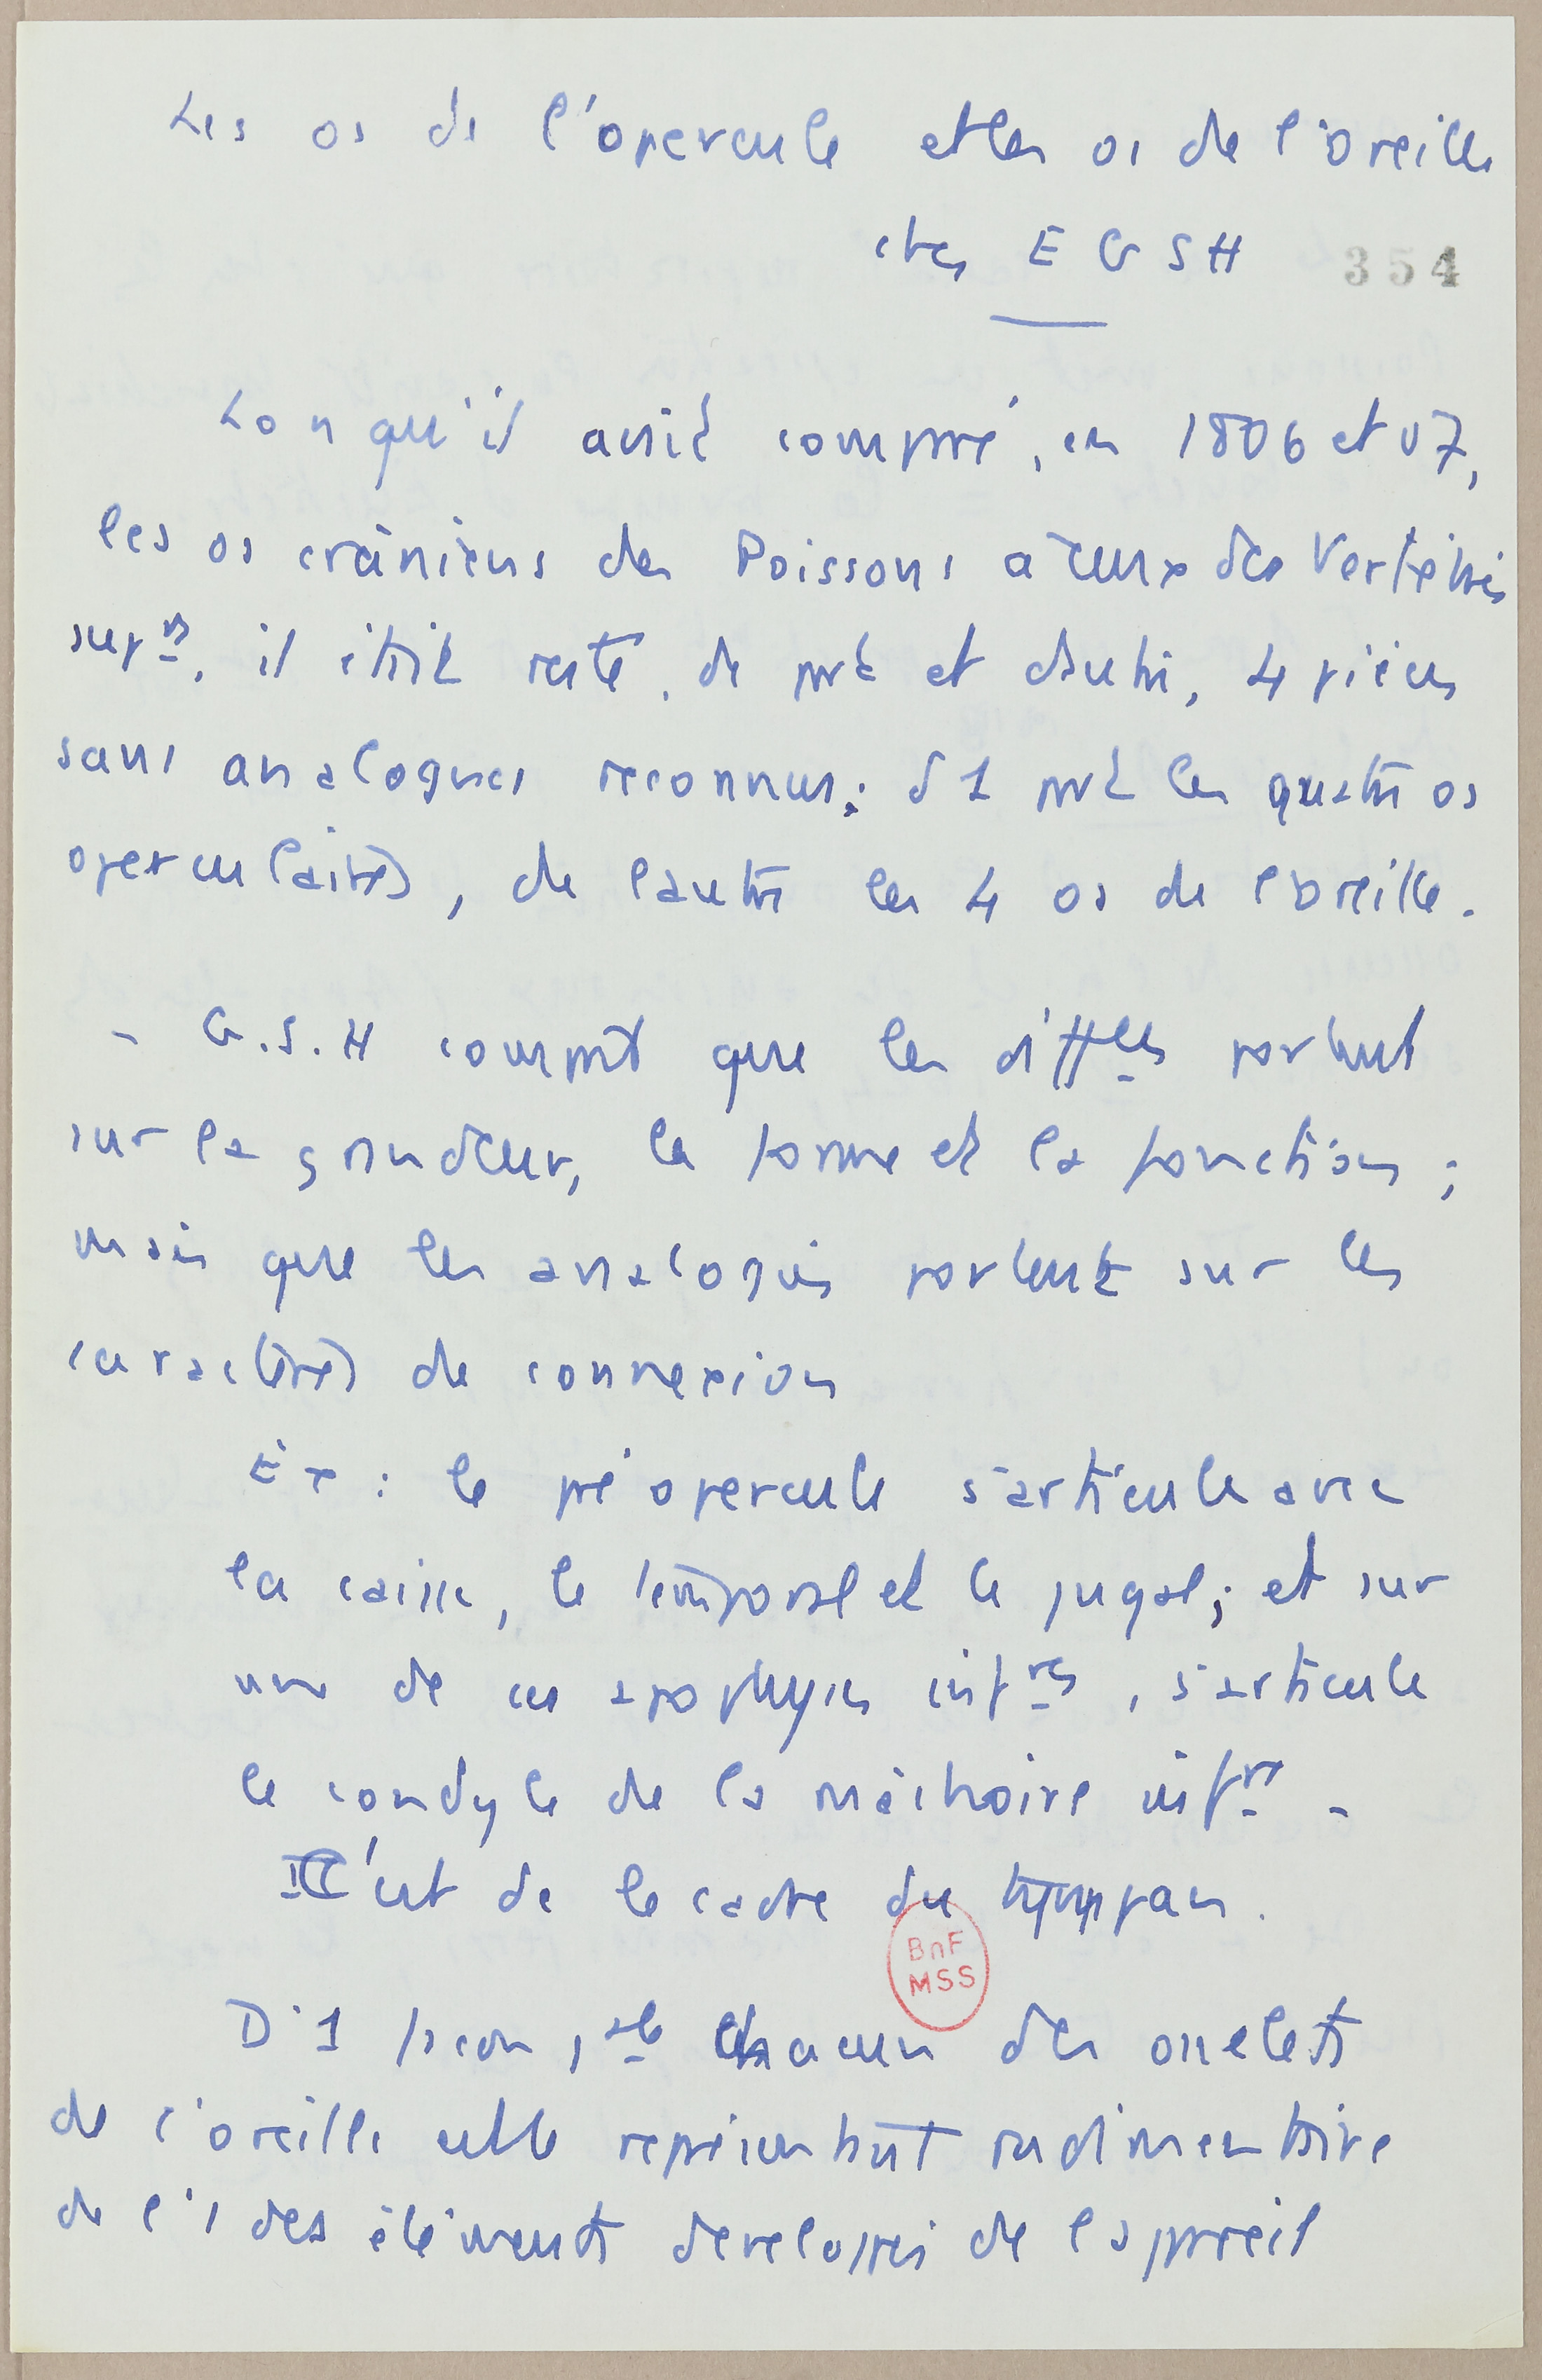 Les os de l'opercule et les os de l'oreille
chez E G S H
354
Lorsqu'il avait comparé, en 1806 et 07,
les os crâniens des Poissons à ceux des Vertébrés
suprs, il était resté, de part et d'autre, 4 pièces
sans analogues reconnus; d'1 part les quatre os
operculaires, de l'autre les 4 os de l'oreille.
- G.S.H comprit que les diffces portent
sur la grandeur, la forme et la fonction;
mais que les analogies portent sur les
caractères de connexion
Ex: le préopercule s'articule avec
la caisse, le temporal et le jugal; et sur
une de ces apophyses infres, s'articule
le condyle de la mâchoire infre.
C'est de le cadre du tympan.
BnF
MSS
D'1 façon gale chacun des osselets
de l'oreille est le représentant rudimentaire
de l'1 des éléments développés de l'appareil